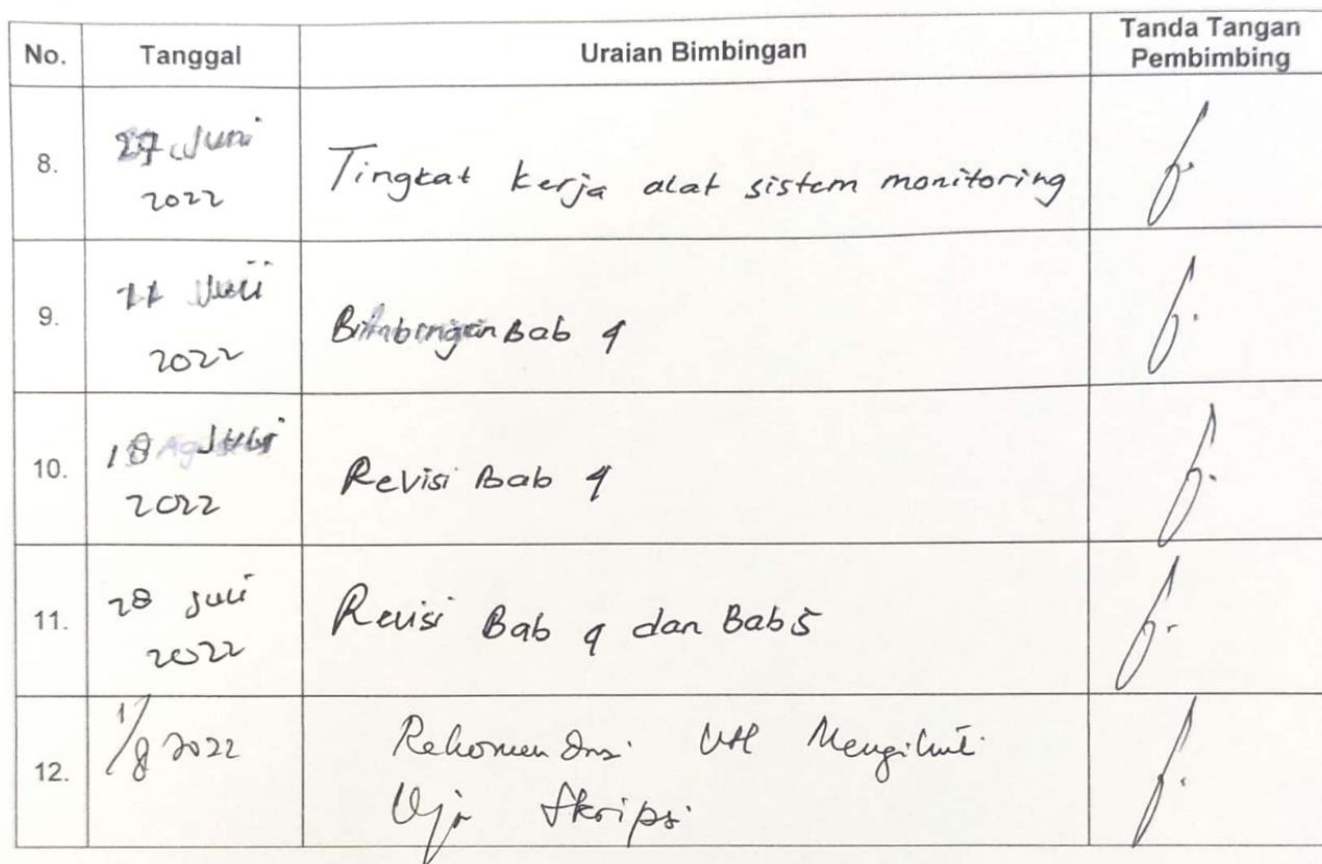 No. Tanggal Uraian Bimbingan Tanda Tangan
Pembimbing
8. 27 Juni
2022
Tingkat kerja alat sistem monitoring
9. 11 Juli
2022
Bimbingan Bab 4
10. 18 Juli
2022
Revisi Bab 4
11. 28 Juli
2022
Revisi Bab 4 dan Bab 5
12. 1/8 2022
Rekomendasi utk Mengikuti
Uji Skripsi